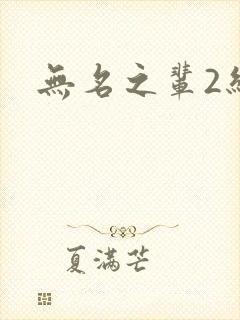 無名之輩2
夏满芒